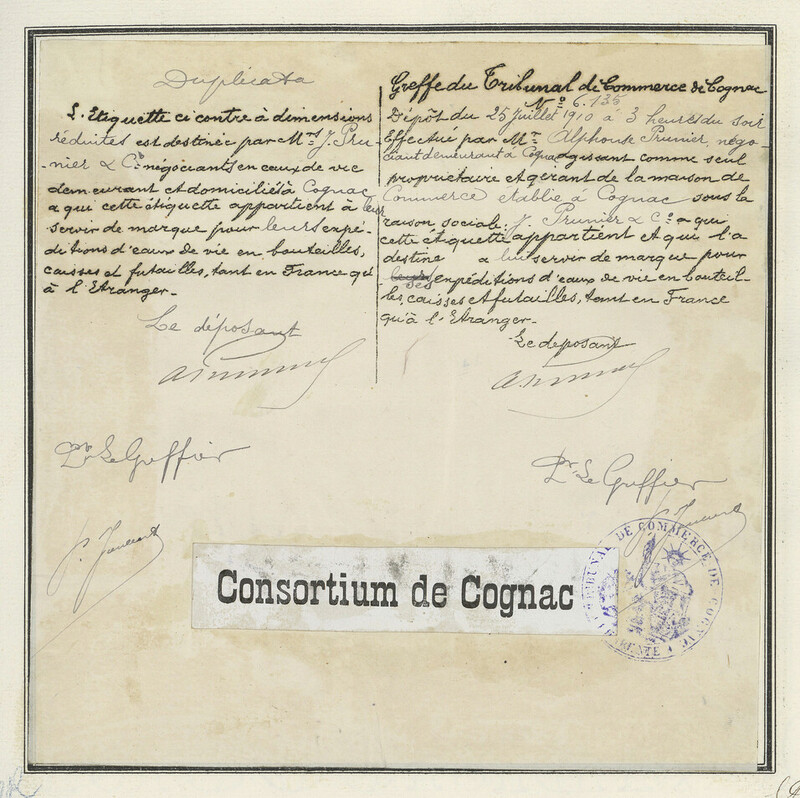 Duplicata
L'Etiquette ci contre à dimensions
réduites est destinée par Mrs J. Pru-
-nier & Co négociants en eaux de vie
demeurant et domiciliés à Cognac
a qui cette étiquette appartient à leur
servir de marque pour leurs expé-
ditions d'eaux de vie en bouteilles,
caisses et futailles, tant en France qu'
à l'Etranger.-
Le déposant
Pr Le Greffier
Greffe du Tribunal de Commerce de Cognac
No 6.135
Dépôt du 25 Juillet 1910 à 3 heures du soir
Effectué par Mr Alphonse Prunier, négo-
ciant demeurant à Cognac agissant comme seul
propriétaire et gérant de la maison de
Commerce établie à Cognac sous la
raison sociale: J. Prunier & Co a qui
cette étiquette appartient et qui l'a
destine a lui servir de marque pour
ses expéditions d'eaux de vie en bouteil-
les, caisses et futailles, tant en France
qu'à l'Etranger.-
Le déposant
Pr Le Greffier
Consortium de Cognac
TRIBUNAL DE COMMERCE DE COGNAC
CHARENTE